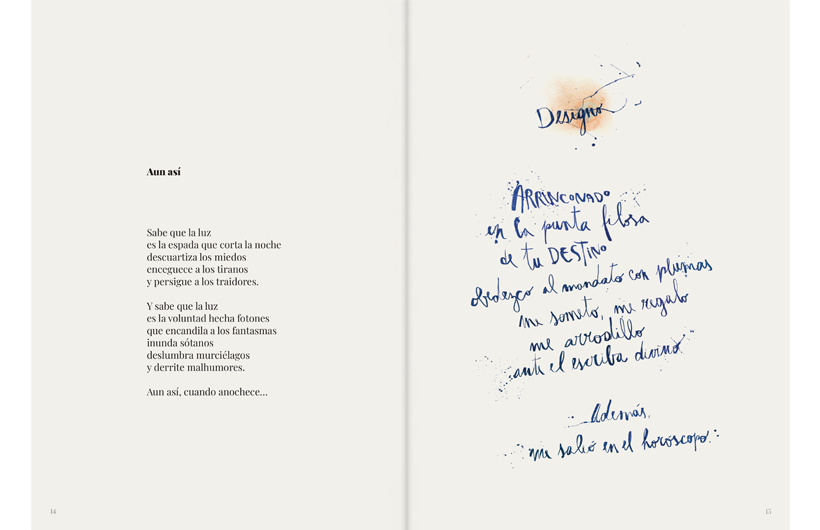 Aun así
Sabe que la luz
es la espada que corta la noche
descuartiza los miedos
enceguece a los tiranos
y persigue a los traidores.
Y sabe que la luz
es la voluntad hecha fotones
que encandila a los fantasmas
inunda sótanos
deslumbra murciélagos
y derrite malhumores.
Aun así, cuando anochece...
14
Designo
ARRINCONADO
en la punta filosa
de tu DESTINO
obedezco al mandato con plumas
me someto, me regalo
me arrodillo
ante el escriba divino.
Además,
me salió en el horóscopo.
15